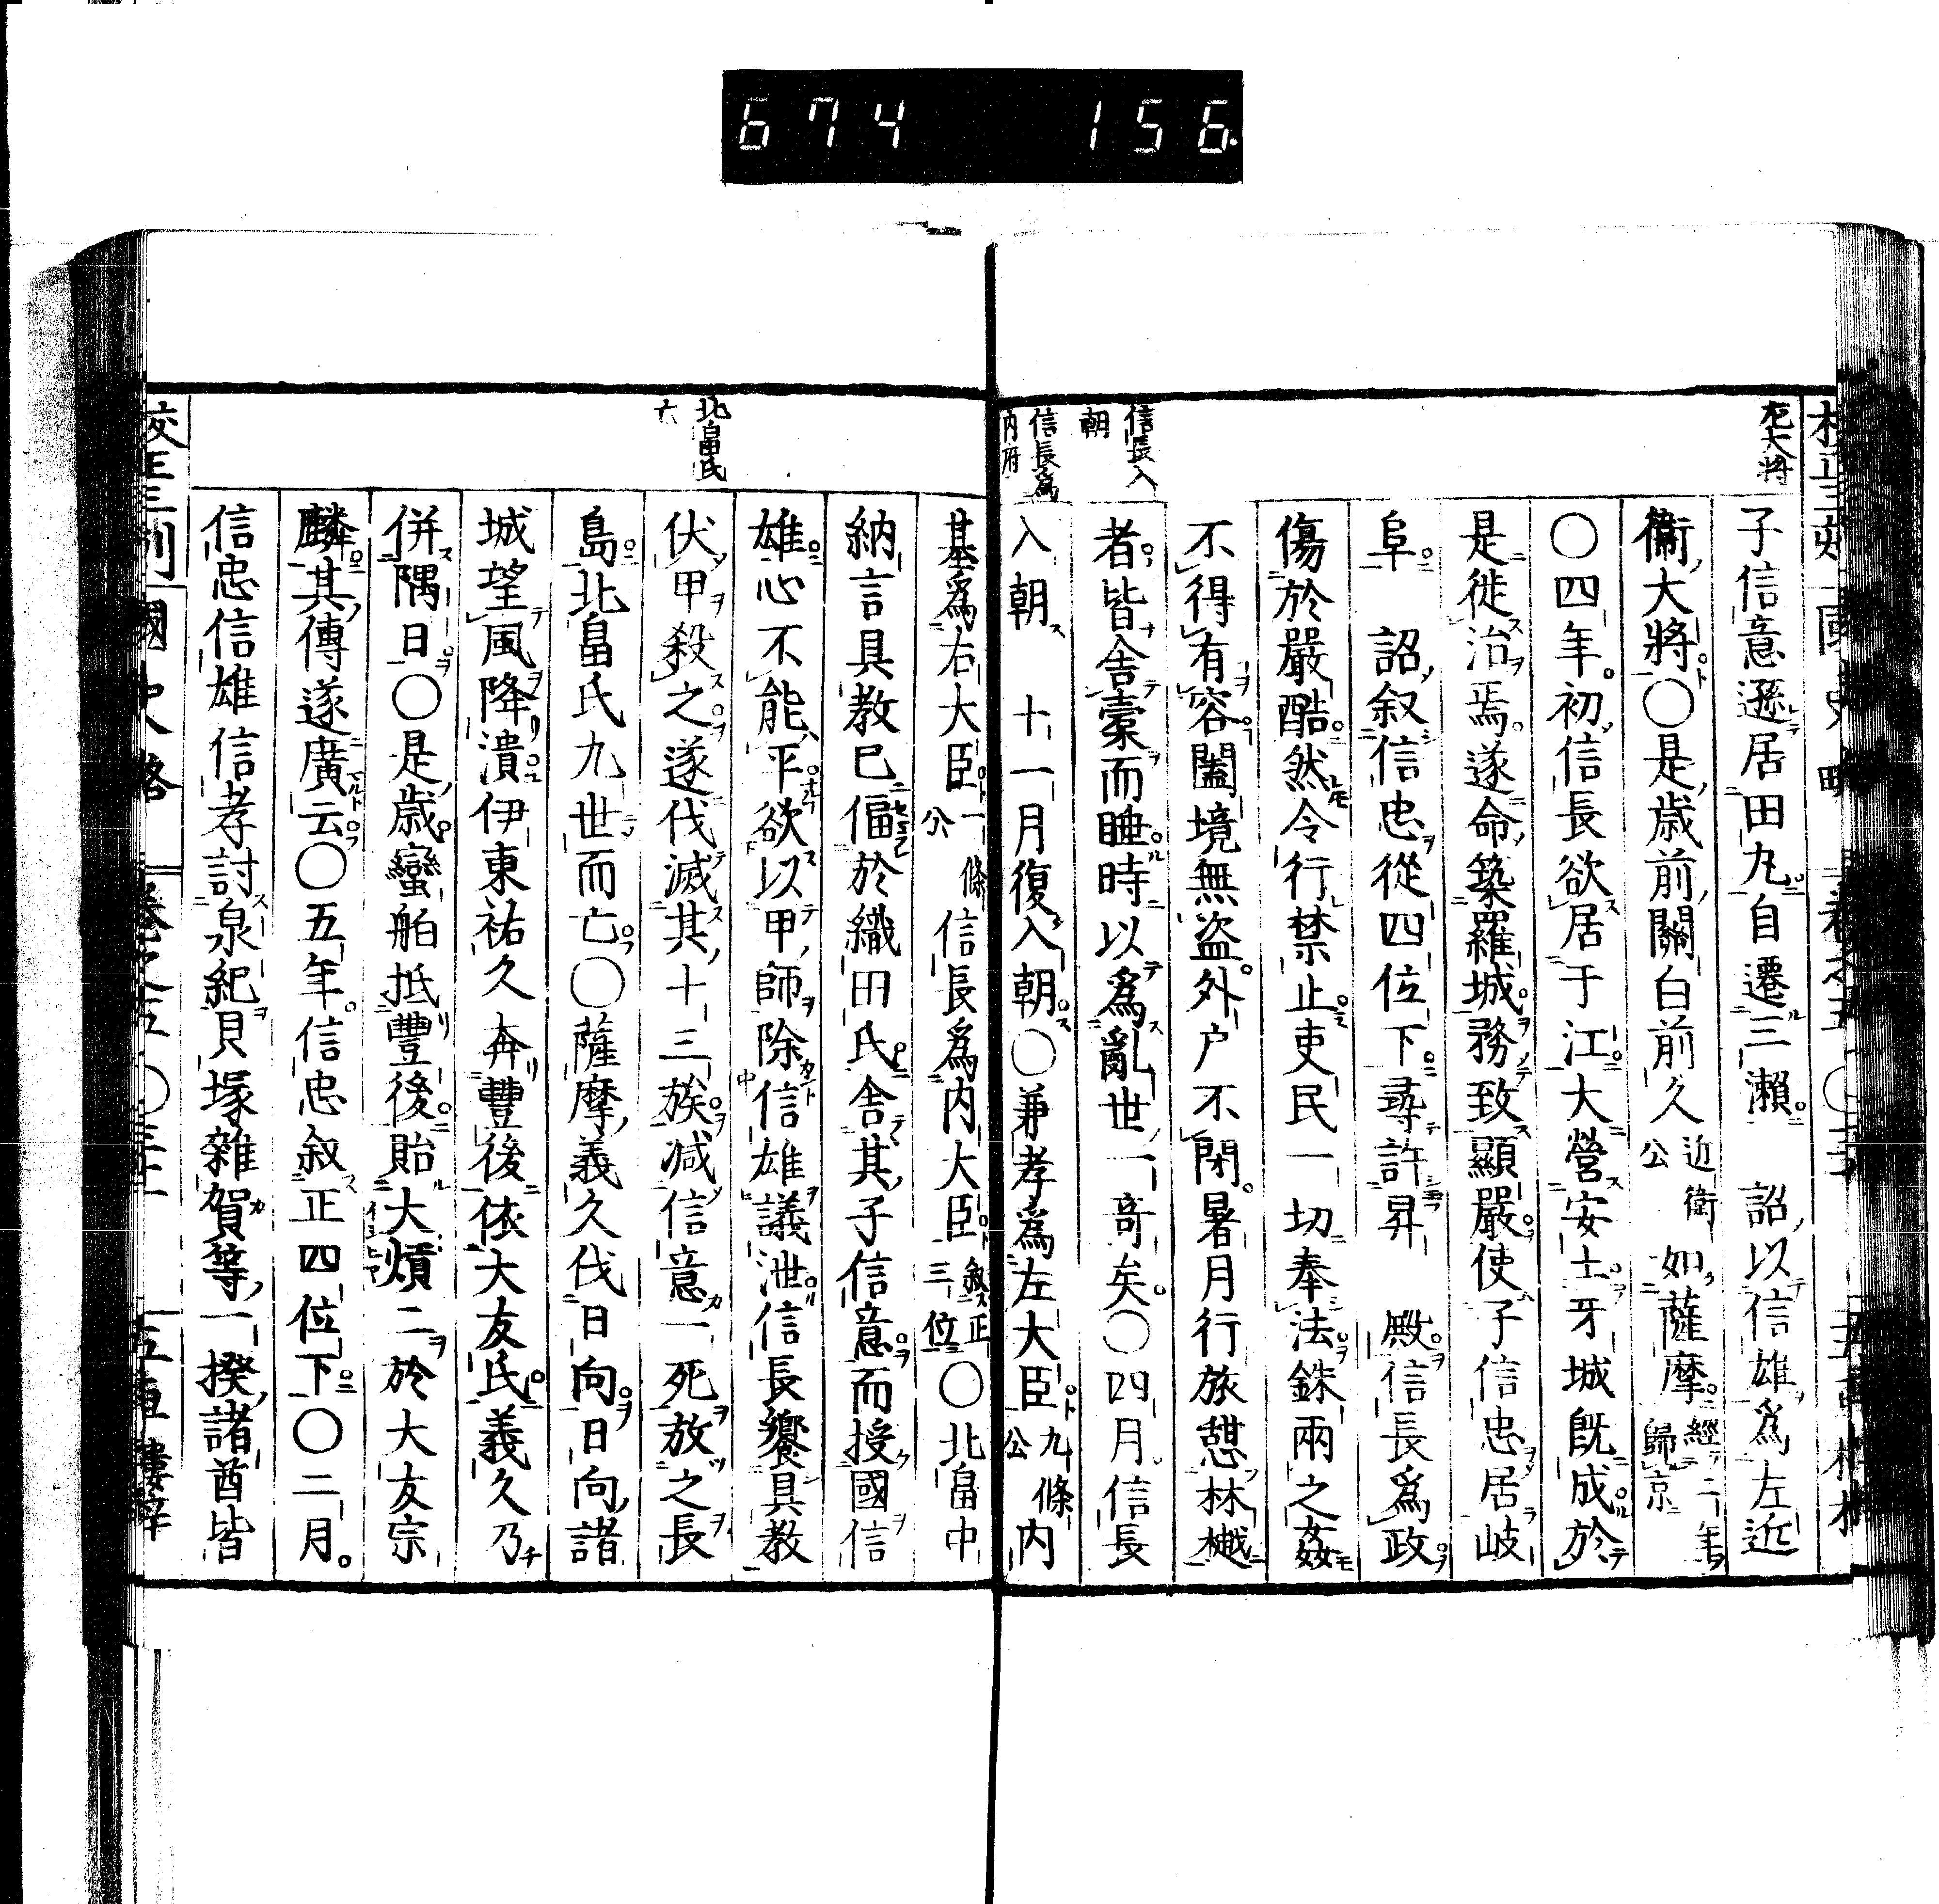 674 156.
左大將
子信意遜居田丸自遷三瀨 詔以信雄爲左近
衞大將〇是歲前關白前久近衛公如薩摩經二年歸京
〇四年初信長欲居于江大營安土牙城既成於
是徙治焉遂命築羅城務致顯嚴使子信忠居岐
阜 詔叙信忠從四位下尋許昇 殿信長爲政
傷於嚴酷然令行禁止吏民一切奉法銖兩之姦
不得有容闔境無盜外戶不閉暑月行旅憩林樾
信長入朝
者皆舍橐而睡時以爲亂世一奇矣〇四月信長
信長爲內府
入朝 十一月復入朝〇兼孝爲左大臣九條公內
基爲右大臣一條公信長爲內大臣叙正三位〇北畠中
納言具教已偪於織田氏舍其子信意而授國信
北畠氏亡
雄心不能平欲以甲師除信雄議泄信長饗具教
伏甲殺之遂伐滅其十三族減信意一死放之長
島北畠氏九世而亡〇薩摩義久伐日向日向諸
城望風降潰伊東祐久奔豐後依大友氏義久乃
併隅日〇是歲蠻舶抵豐後貽大熕二於大友宗
麟其傳遂廣云〇五年信忠叙正四位下〇二月
信忠信雄信孝討泉紀貝塚雜賀等一揆諸酋皆
校正三刻 國史略 卷之五 〇三十 五車樓梓